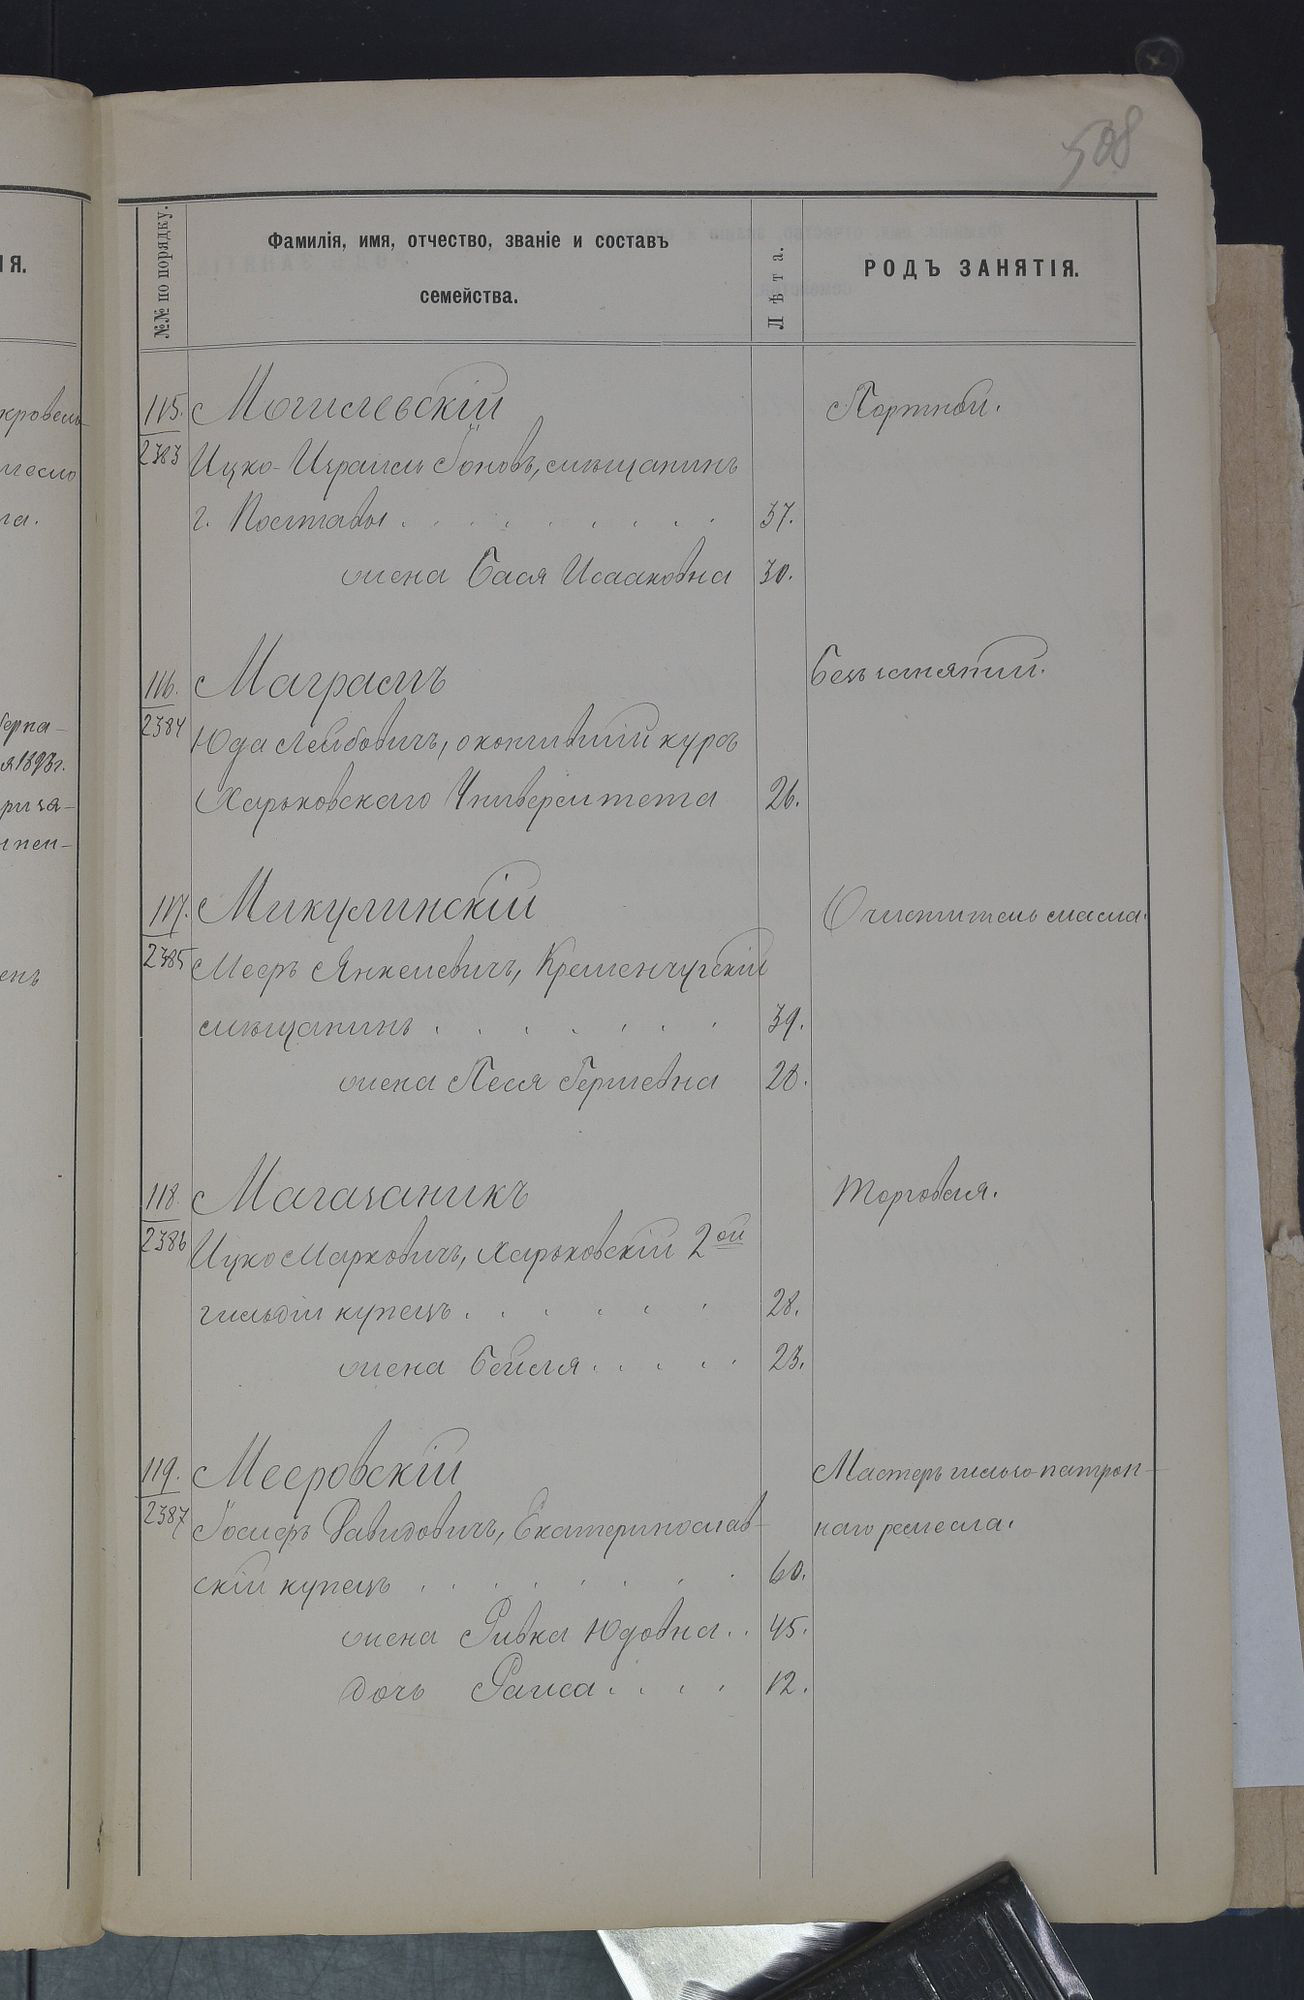 508
№№ по порядку.
Фамилія, имя, отчество, званіе и составъ
семейства.
Лѣта.
РОДЪ ЗАНЯТІЯ.
ІЯ.
кровель-
месло
га.
берна-
я 1893 г.
риза-
115.
2383
Могилевскій
Портной.
Ицко-Израиль Іоновъ, мѣщанинъ
г. Поставы . . . . . . . . 37.
жена Бася Исааковна 30.
116.
2384
Маграмъ
Безъ занятій.
Юда Лейбовичъ, окончившій курсъ
Харьковскаго Университета 26.
117.
2385
Микулинскій
Очиститель масла.
Мееръ Янкелевичъ, Кременчугскій
мѣщанинъ . . . . . . . 39.
жена Песя Гершевна 28.
118.
2386
Магазаникъ
Торговля.
Ицко Марковичъ, Харьковскій 2ой
гильдіи купецъ . . . . . . 28.
жена Бейля . . . . . 23.
119.
2387
Мееровскій
Мастеръ гильзо-патрон-
наго ремесла.
Іосифъ Давидовичъ, Екатеринослав-
скій купецъ . . . . . . . . 60.
жена Ривка Юдовна . . 45.
дочь Раиса . . . . 12.